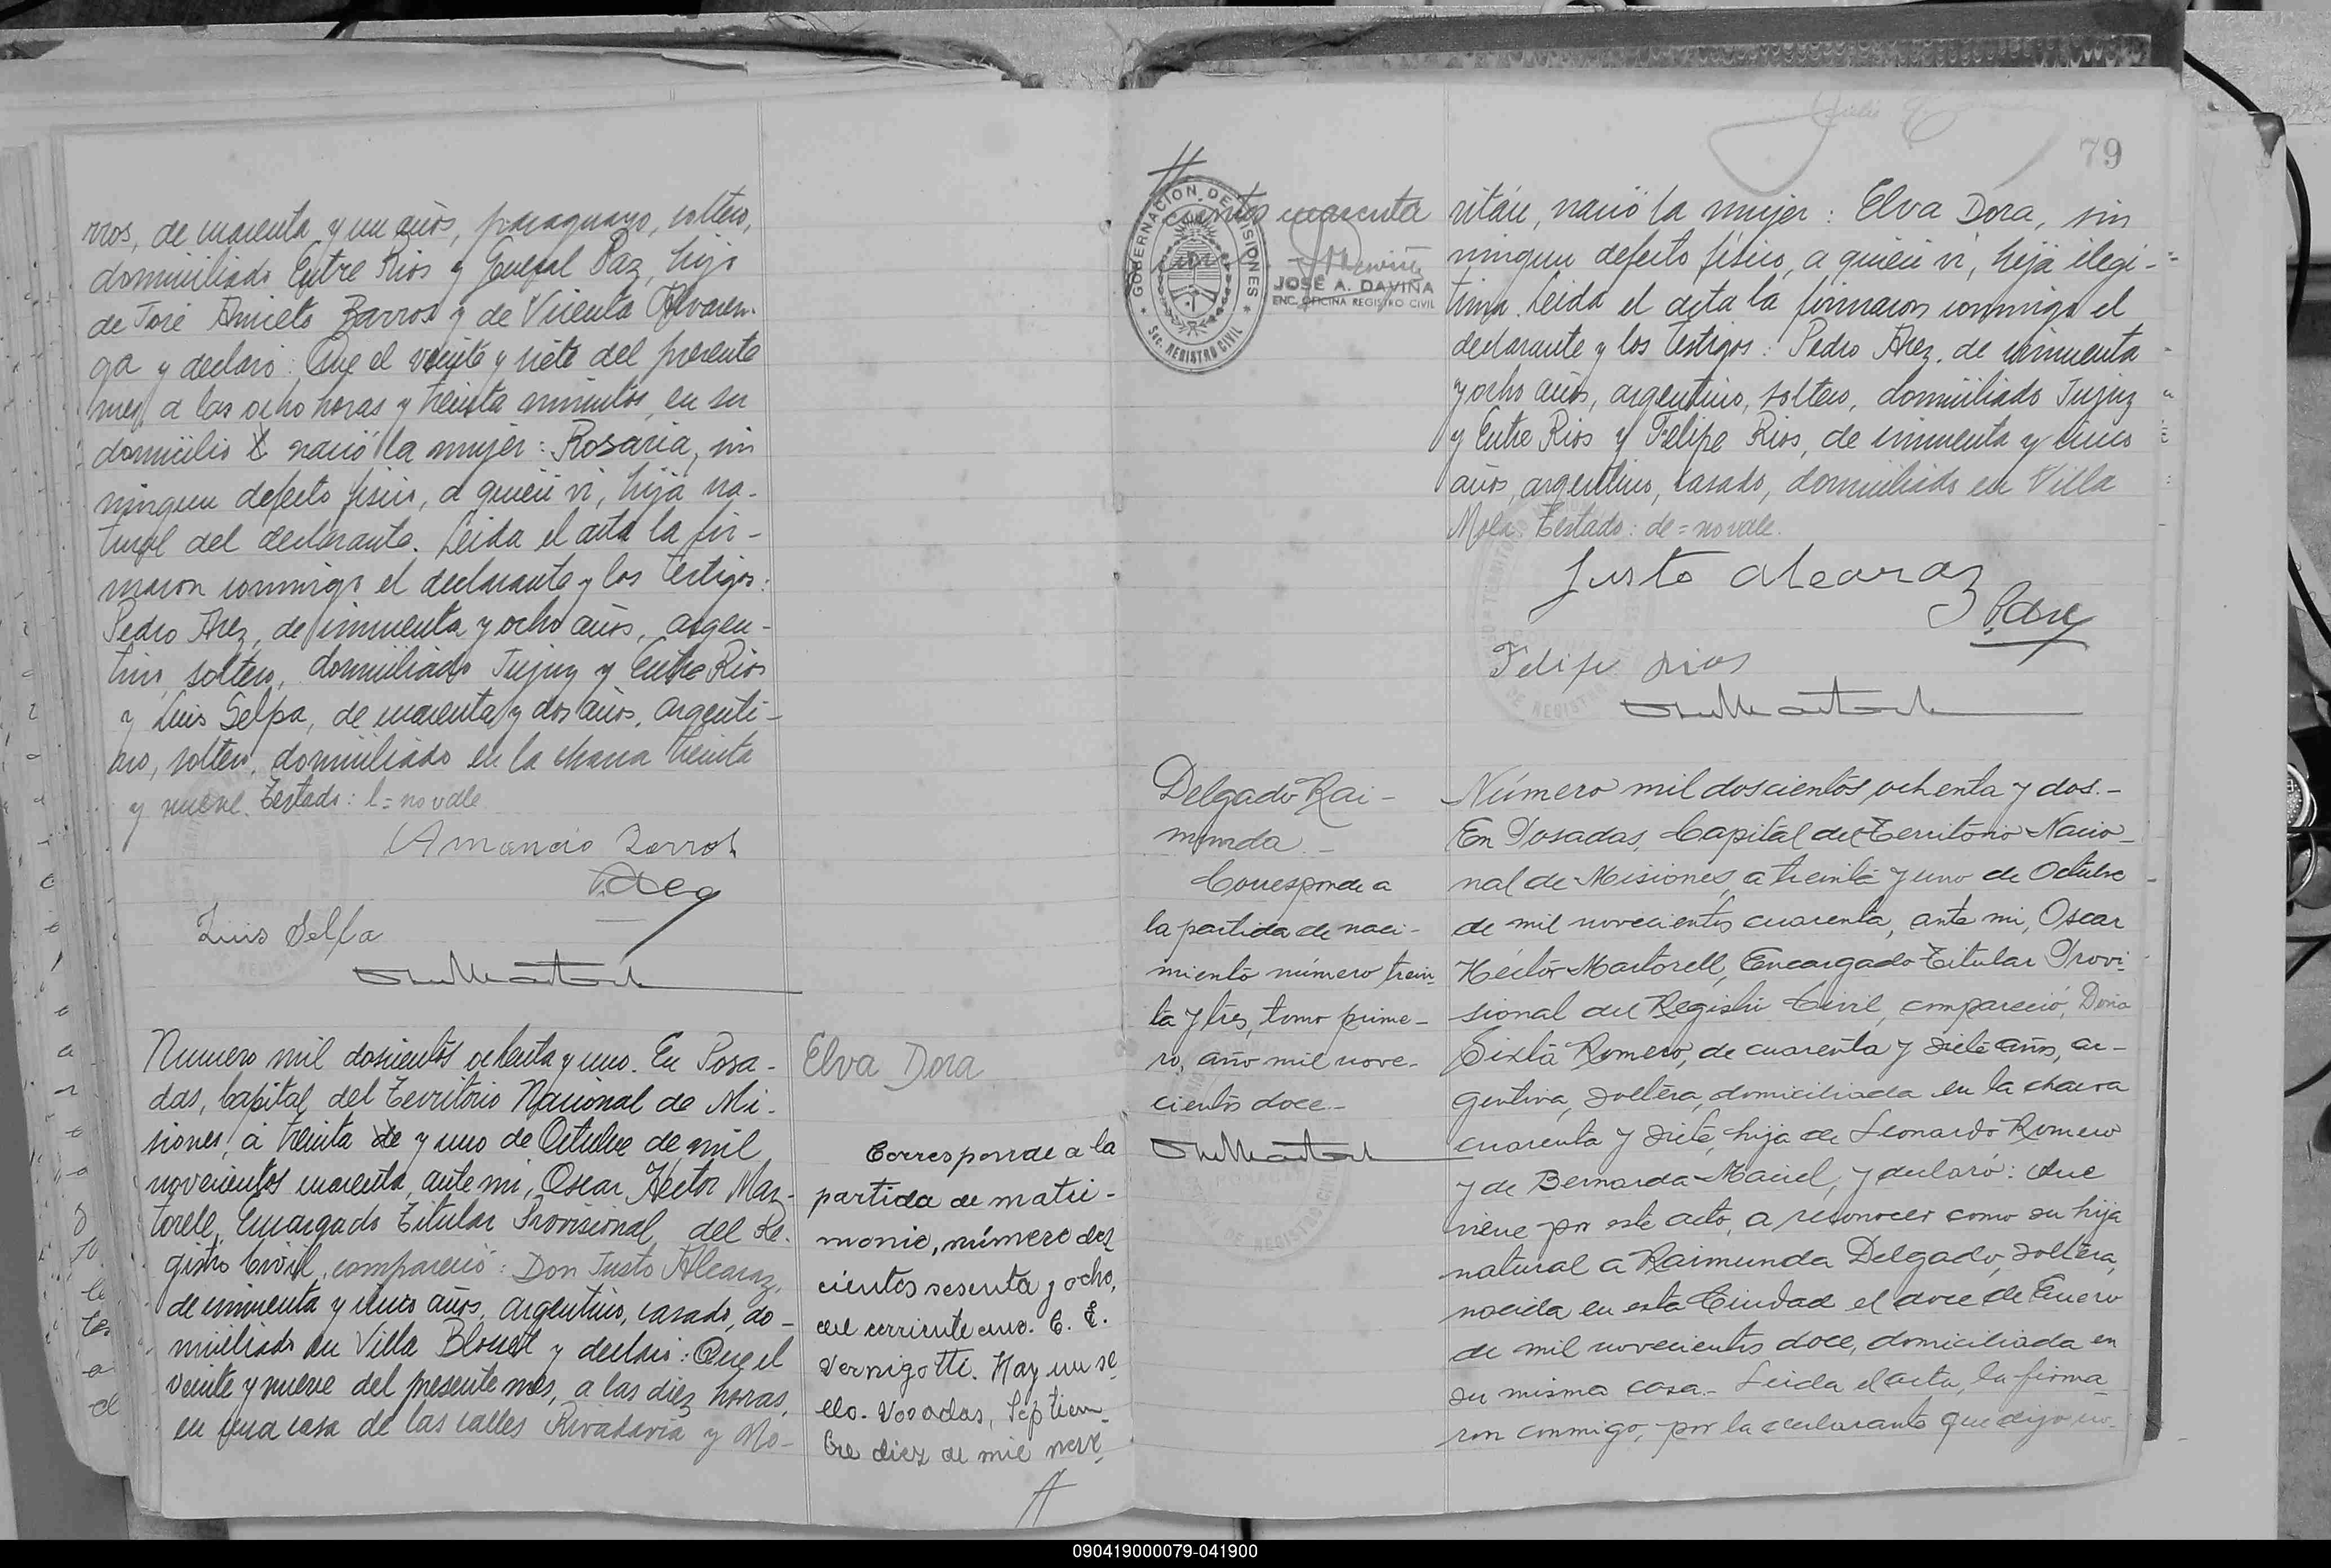 rros, de cuarenta y un años, paraguayo, soltero,
domiciliado Entre Rios y General Paz, hijo
de José Aniceto Barros y de Vicenta Alvaren-
ga y declaró: Que el veinte y siete del presente
mes, a las ocho horas y treinta minutos, en su
domicilio nació la mujer: Rosaria, sin
ningun defecto fisico, a quien vi, hija na-
tural del declarante. Leida el acta la fir-
maron conmigo el declarante y los testigos:
Pedro Arez, de cincuenta y ocho años, argen-
tino, soltero, domiciliado Jujuy y Entre Rios
y Luis Selpa, de cuarenta y dos años, argenti-
no, soltero, domiciliado en la chacra treinta
y nueve. Testado: l= no vale
Amancio Barros
Luis Selpa
Numero mil doscientos ochenta y uno. En Posa-
das, Capital del Territorio Nacional de Mi-
siones, a treinta de y uno de Octubre de mil
novecientos cuarenta, ante mi, Oscar Hector Mar-
torell, Encargado Titular Provisional del Re-
gistro Civil, compareció: Don Justo Alcaraz,
de cincuenta y cinco años, argentino, casado, do-
miciliado en Villa Blosset y declaró: Que el
veinte y nueve del presente mes, a las diez horas,
en una casa de las calles Rivadavia y Mo-
Elva Dora
Corresponde a la
partida de matri-
monio, número dos
cientos sesenta y ocho,
del corriente año. C. E.
Vernigotti. Hay un se
llo. Posadas, Septiem-
bre diez de mil nove
79
cientos cuarenta
GOBERNACION DE MISIONES
Sec. REGISTRO CIVIL
JOSE A. DAVIÑA
ENC. OFICINA REGISTRO CIVIL
ritán, nació la mujer: Elva Dora, sin
ningun defecto fisico, a quien vi, hija ilegi-
tima. Leida el acta la firmaron conmigo el
declarante y los testigos: Pedro Arez, de cincuenta
y ocho años, argentino, soltero, domiciliado Jujuy
y Entre Rios y Felipe Rios, de cincuenta y cinco
años, argentino, casado, domiciliado en Villa
Mola. Testado: de= no vale.
Justo Alcaraz
Felipe Rios
Delgado Rai-
munda.-
Corresponde a
la partida de naci-
miento número trein-
ta y tres, tomo prime-
ro, año mil nove-
cientos doce.-
Número mil doscientos ochenta y dos.-
En Posadas, Capital del Territorio Nacio-
nal de Misiones, a treinta y uno de Octubre
de mil novecientos cuarenta, ante mi, Oscar
Héctor Martorell, Encargado Titular Provi-
sional del Registro Civil, compareció, Doña
Sixta Romero, de cuarenta y siete años, ar-
gentina, soltera, domiciliada en la chacra
cuarenta y siete, hija de Leonardo Romero
y de Bernarda Maciel, y declaró: Que
viene por este acto, a reconocer como su hija
natural a Raimunda Delgado, soltera,
nacida en esta Ciudad el doce de Enero
de mil novecientos doce, domiciliada en
su misma casa.- Leida el acta, la firma-
ron conmigo, por la declarante que dijo no-
090419000079-041900